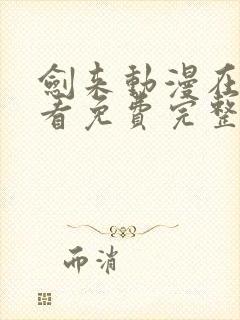 劍来動漫在
看免費完整
而消